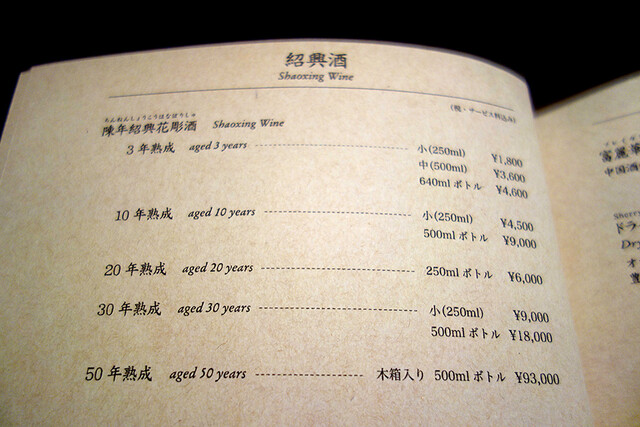 紹興酒
Shaoxing Wine
(税・サービス料込み)
ちんねんしょうこうはなほりしゅ
陳年紹興花彫酒 Shaoxing Wine
3年熟成 aged 3 years 小(250ml) ¥1,800
中(500ml) ¥3,600
640mlボトル ¥4,600
10年熟成 aged 10 years 小(250ml) ¥4,500
500mlボトル ¥9,000
20年熟成 aged 20 years 250mlボトル ¥6,000
30年熟成 aged 30 years 小(250ml) ¥9,000
500mlボトル ¥18,000
50年熟成 aged 50 years 木箱入り 500mlボトル ¥93,000
富麗華
中国酒
Sherry
ドラ
Dry
オ